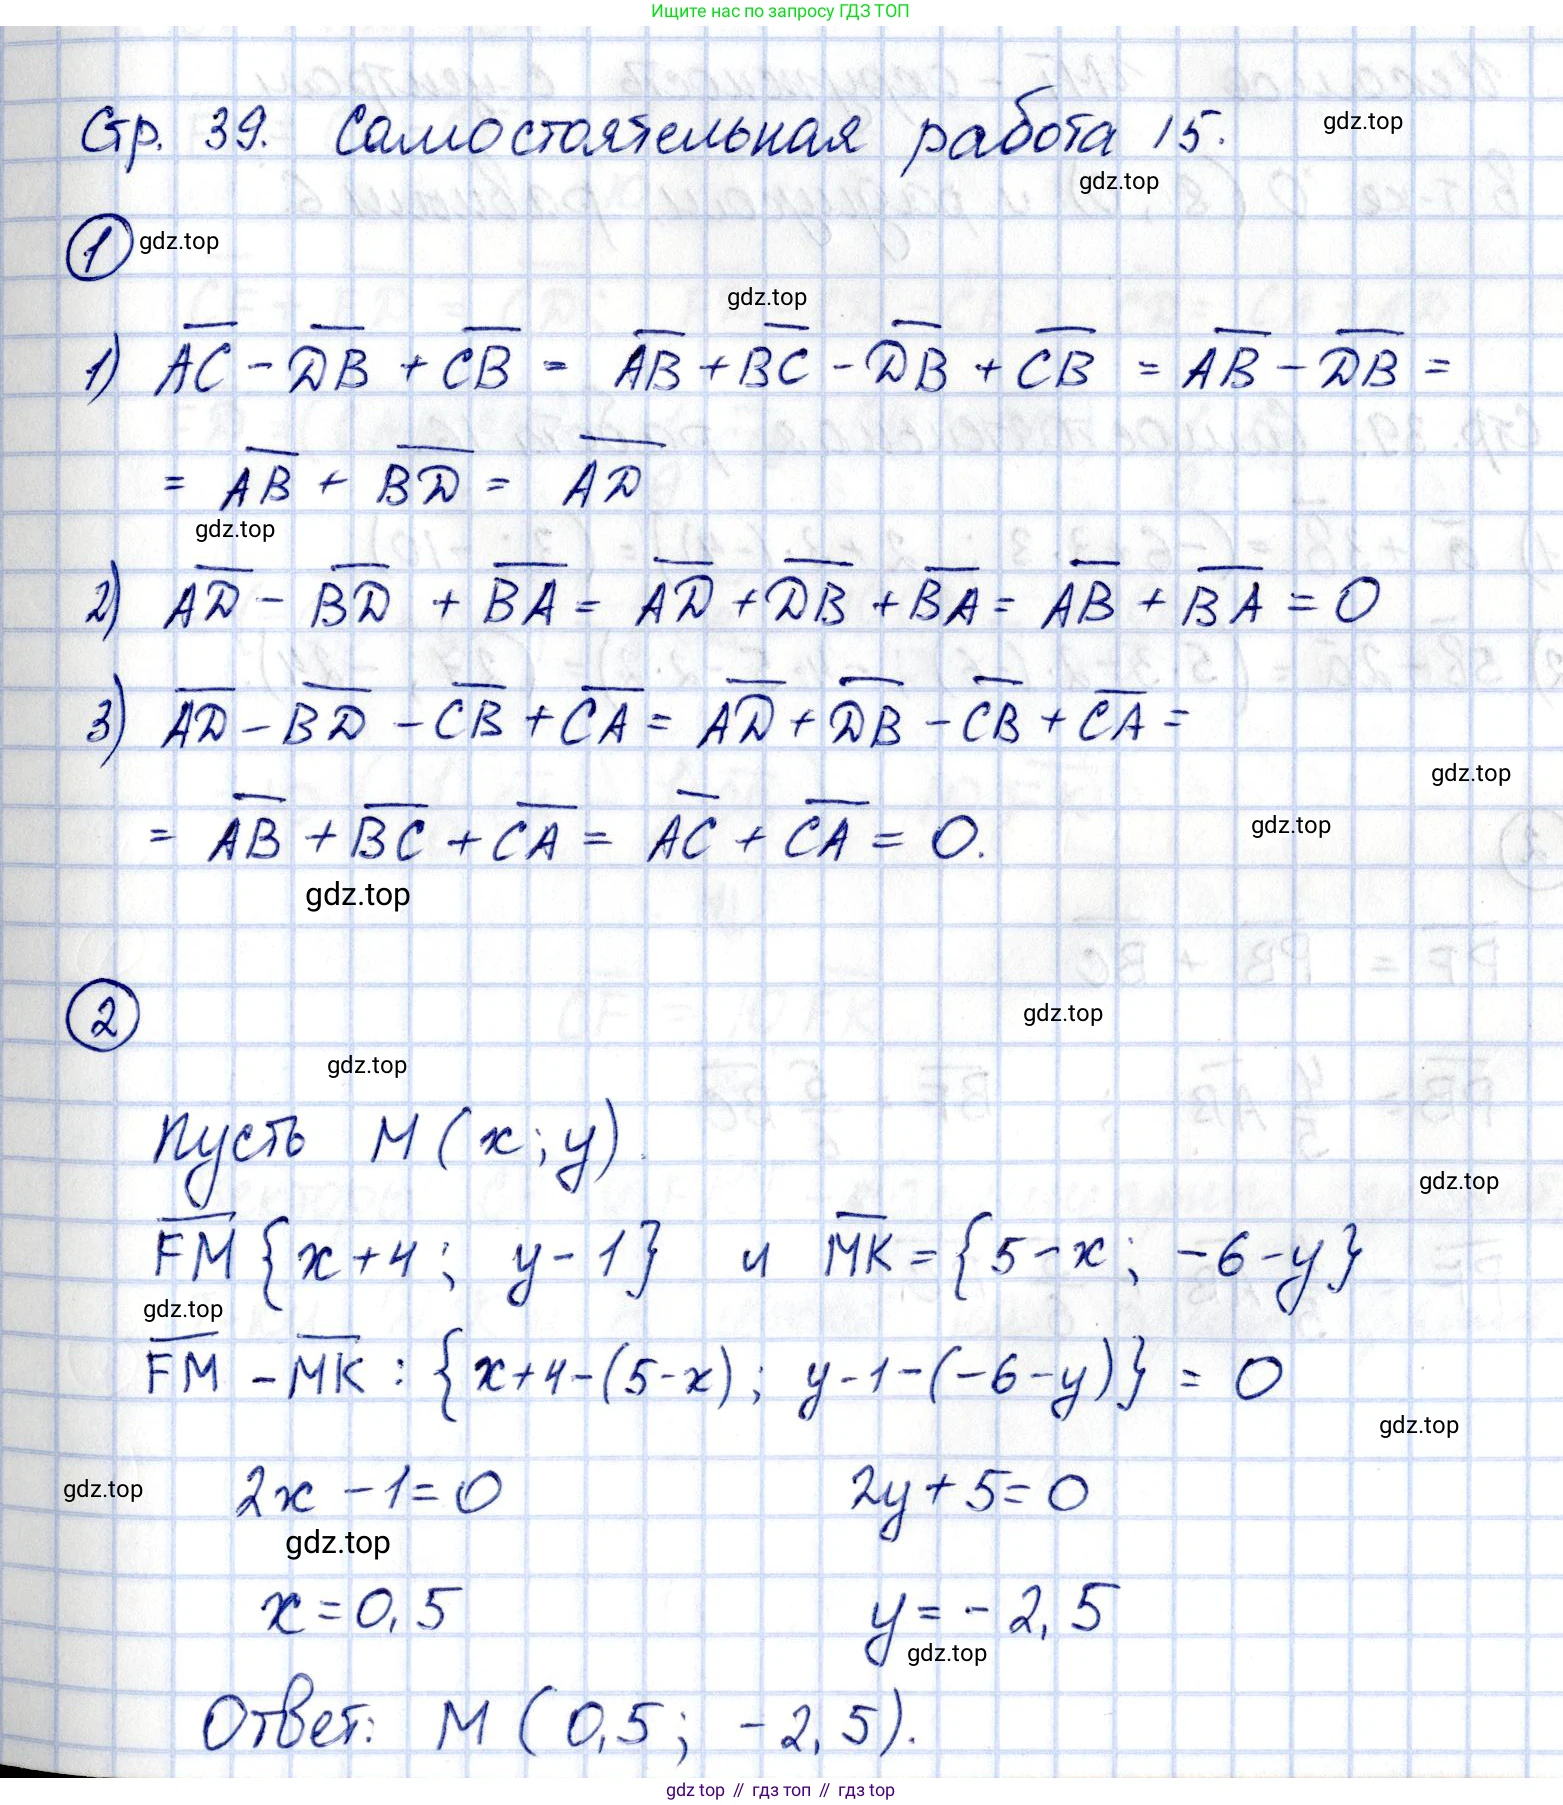 Ищите нас по запросу ГДЗ ТОП
Стр. 39. Самостоятельная работа 15.
gdz.top
gdz.top
1 gdz.top
gdz.top
1) AC - DB + CB = AB + BC - DB + CB = AB - DB =
= AB + BD = AD
gdz.top
2) AD - BD + BA = AD + DB + BA = AB + BA = 0
3) AD - BD - CB + CA = AD + DB - CB + CA =
gdz.top
= AB + BC + CA = AC + CA = 0.
gdz.top
gdz.top
2
gdz.top
gdz.top
Пусть M (x; y).
gdz.top
FM {x+4; y-1} и MK = {5-x; -6-y}
gdz.top
FM - MK : {x+4-(5-x); y-1-(-6-y)} = 0
gdz.top
gdz.top
2x - 1 = 0 2y + 5 = 0
gdz.top
x = 0,5 y = - 2,5
gdz.top
Ответ: M ( 0,5; -2,5).
gdz top // гдз топ // гдз top